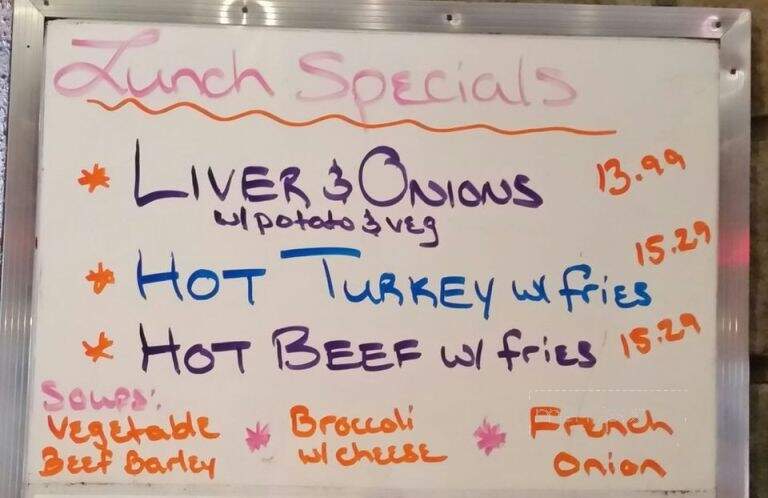 Lunch Specials
* LIVER & ONIONS 13.99
w/ potato & veg
* HOT TURKEY w/ fries 15.29
* HOT BEEF w/ fries 15.29
Soups:
Vegetable * Broccoli * French
Beef Barley w/ cheese Onion